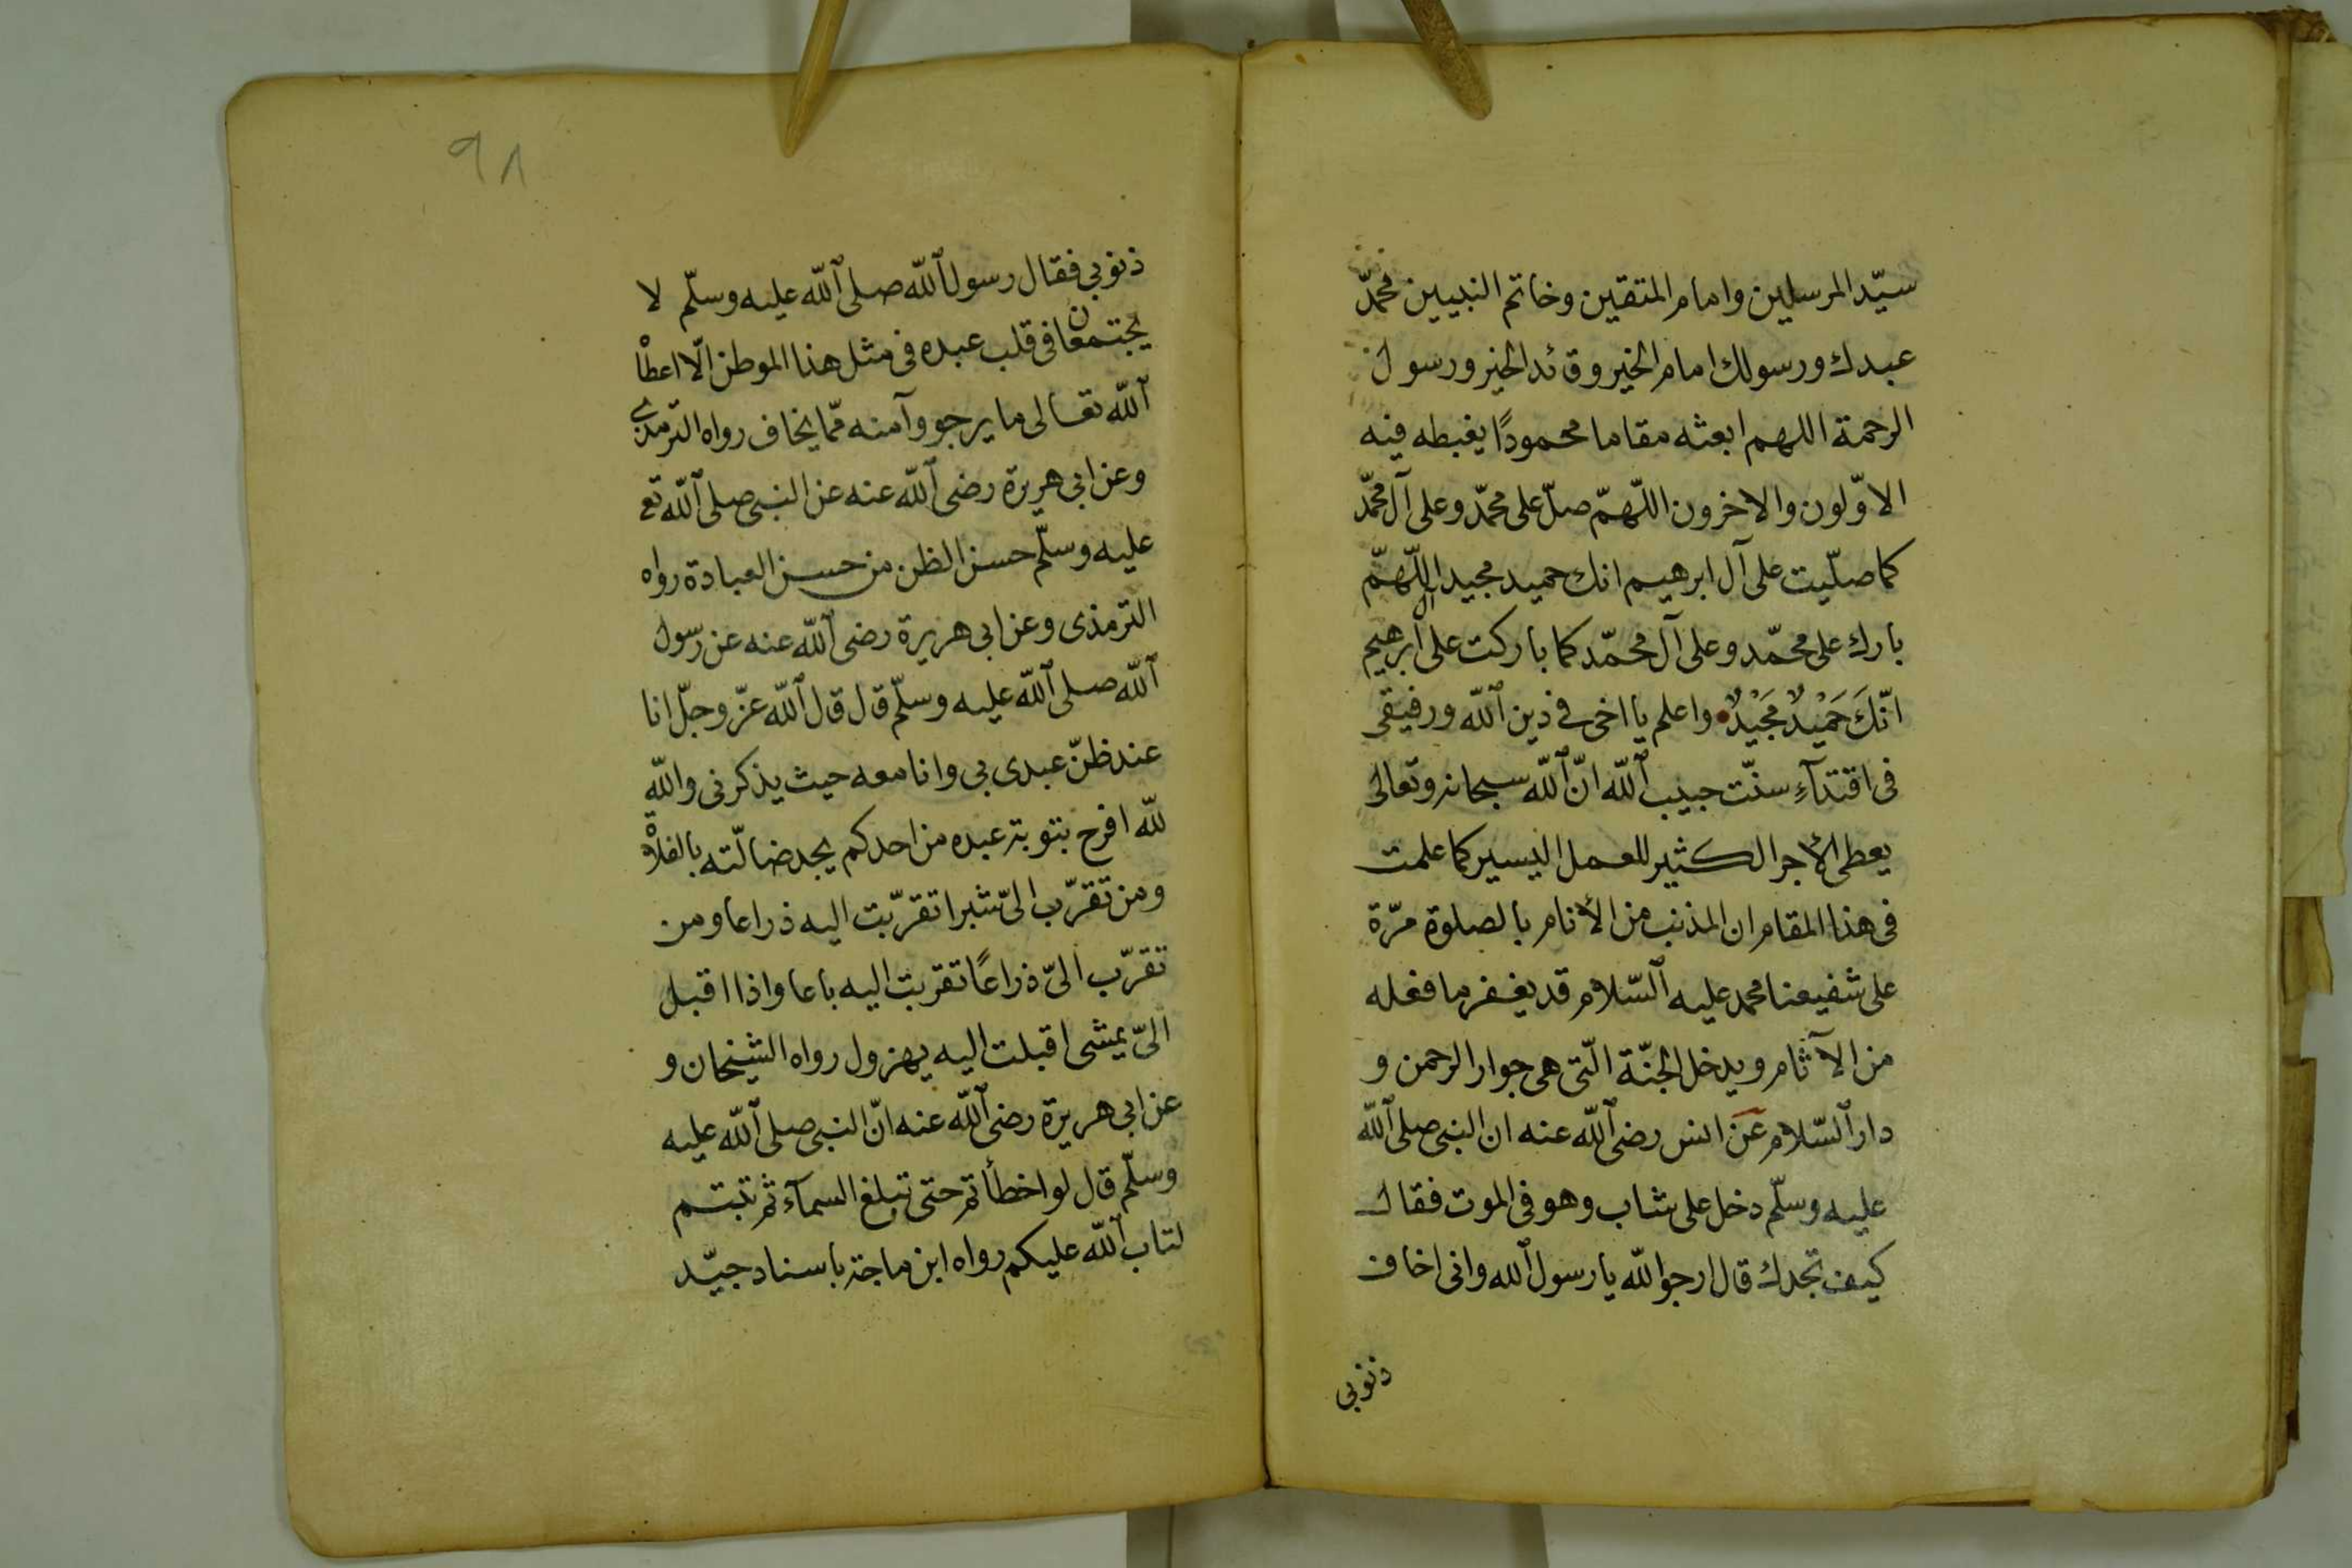 سيّد المرسلين وامام المتقين وخاتم النبيين محمّد
عبدك ورسولك امام الخير وقائد الخير ورسول
الرحمة اللهم ابعثه مقاما محمودًا يغبطه فيه
الاوّلون والاخرون اللّهمّ صلّ على محمّد وعلى آل محمّد
كما صلّيت على آل ابرهيم انك حميد مجيد اللّهمّ
بارك على محمّد وعلى آل محمّد كما باركت على آل ابرهيم
انّكَ حَمَيْدٌ مَجَيْدٌ واعلم يا اخى فى دين اللّه ورفيقى
فى اقتدآءِ سنّت حبيب اللّه انّ اللّه سبحانه وتعالى
يعطى الأجر الكثير للعمل اليسير كما علمت
فى هذا المقام ان المذنب من الأنام بالصلوة مرّة
على شفيعنا محمد عليه السّلام قد يغفر ما فعله
من الآثام ويدخل الجنّة الّتى هى جوار الرحمن و
دار السّلام عن انس رضى اللّه عنه ان النبى صلى اللّه
عليه وسلّم دخل على شاب وهو فى الموت فقال
كيف تجدك قال ارجو اللّه يا رسول اللّه وانى اخاف
ذنوبى
٩٨
ذنوبى فقال رسول اللّه صلى اللّه عليه وسلّم لا
يجتمعان فى قلب عبده فى مثل هذا الموطن الّا اعطاه
اللّه تعالى ما يرجو وآمنه ممّا يخاف رواه الترمذى
وعن ابى هريرة رضى اللّه عنه عن النبى صلى اللّه تع
عليه وسلّم حسن الظن من حسن العبادة رواه
الترمذى وعن ابى هريرة رضى اللّه عنه عن رسول
اللّه صلى اللّه عليه وسلّم قال قال اللّه عزّ وجلّ انا
عند ظنّ عبدى بى وانا معه حيث يذكرنى واللّه
للّه افرح بتوبة عبده من احدكم يجد ضالّته بالفلاة
ومن تقرّب الىّ شبرا تقرّبت اليه ذراعا ومن
تقرّب الىّ ذراعًا تقربت اليه باعا واذا اقبل
الىّ يمشى اقبلت اليه يهرول رواه الشيخان و
عن ابى هريرة رضى اللّه عنه انّ النبى صلى اللّه عليه
وسلّم قال لو اخطأتم حتى تبلغ السمآء ثم تبتم
لتاب اللّه عليكم رواه ابن ماجة باسناد جيّد